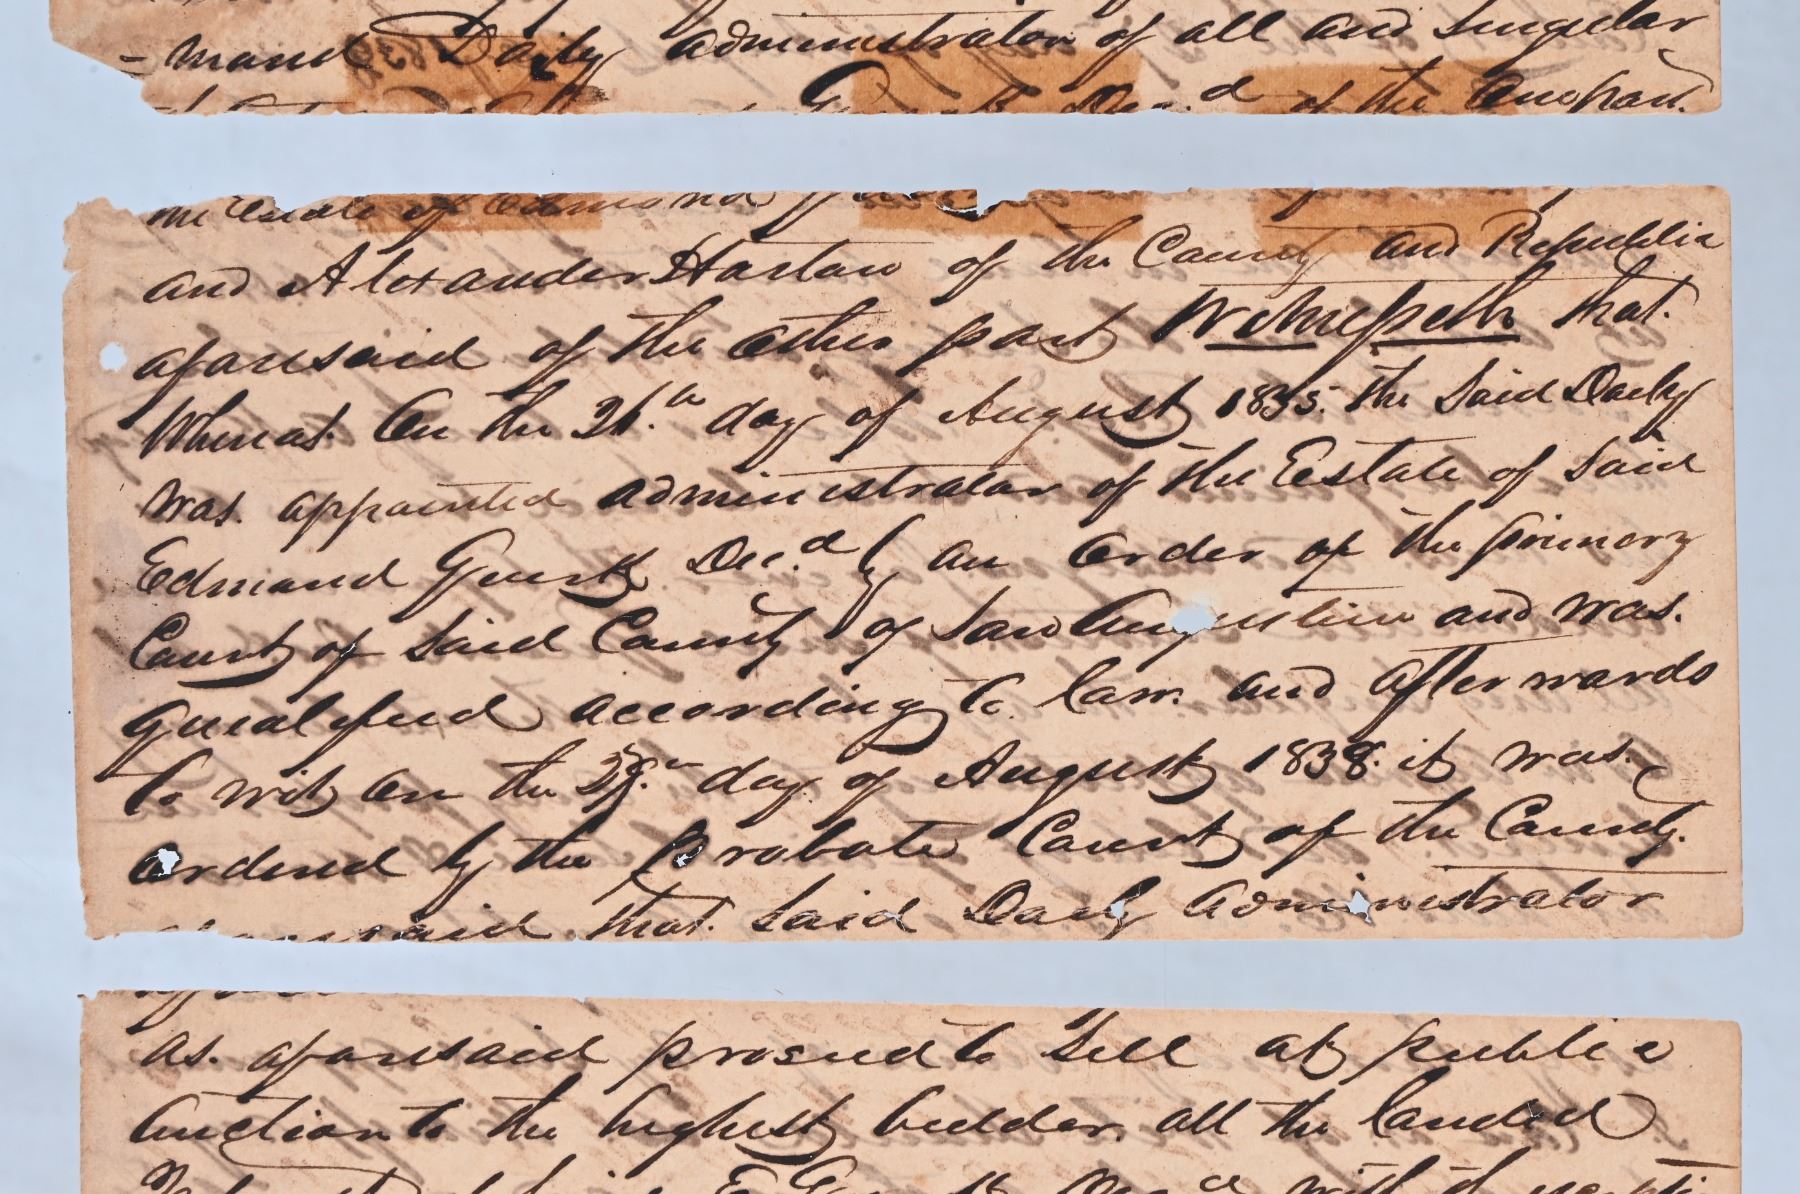 - mand Daily administrator of all and Singular
Guest Dec.d of the One part.
the Estate of Edmond
and Alexander Harlaw of the County and Republic
afaresaid of the Other part Witnesseth that.
Whereas. On the 26.th day of August 1835. the Said Daily
was. appointed administrator of the Estate of Said
Edmand Guest Dec.d by an Order of the primary
Court of Said County of San Augustine and was.
qualified according to law. and afterwards
to wit On the day of August 1838. it was.
Ordered by the Probate Court of the County.
aforesaid that. Said Daily Administrator
as. aforesaid proseed to Sell at public
Auction to the highest bidder. all the landed